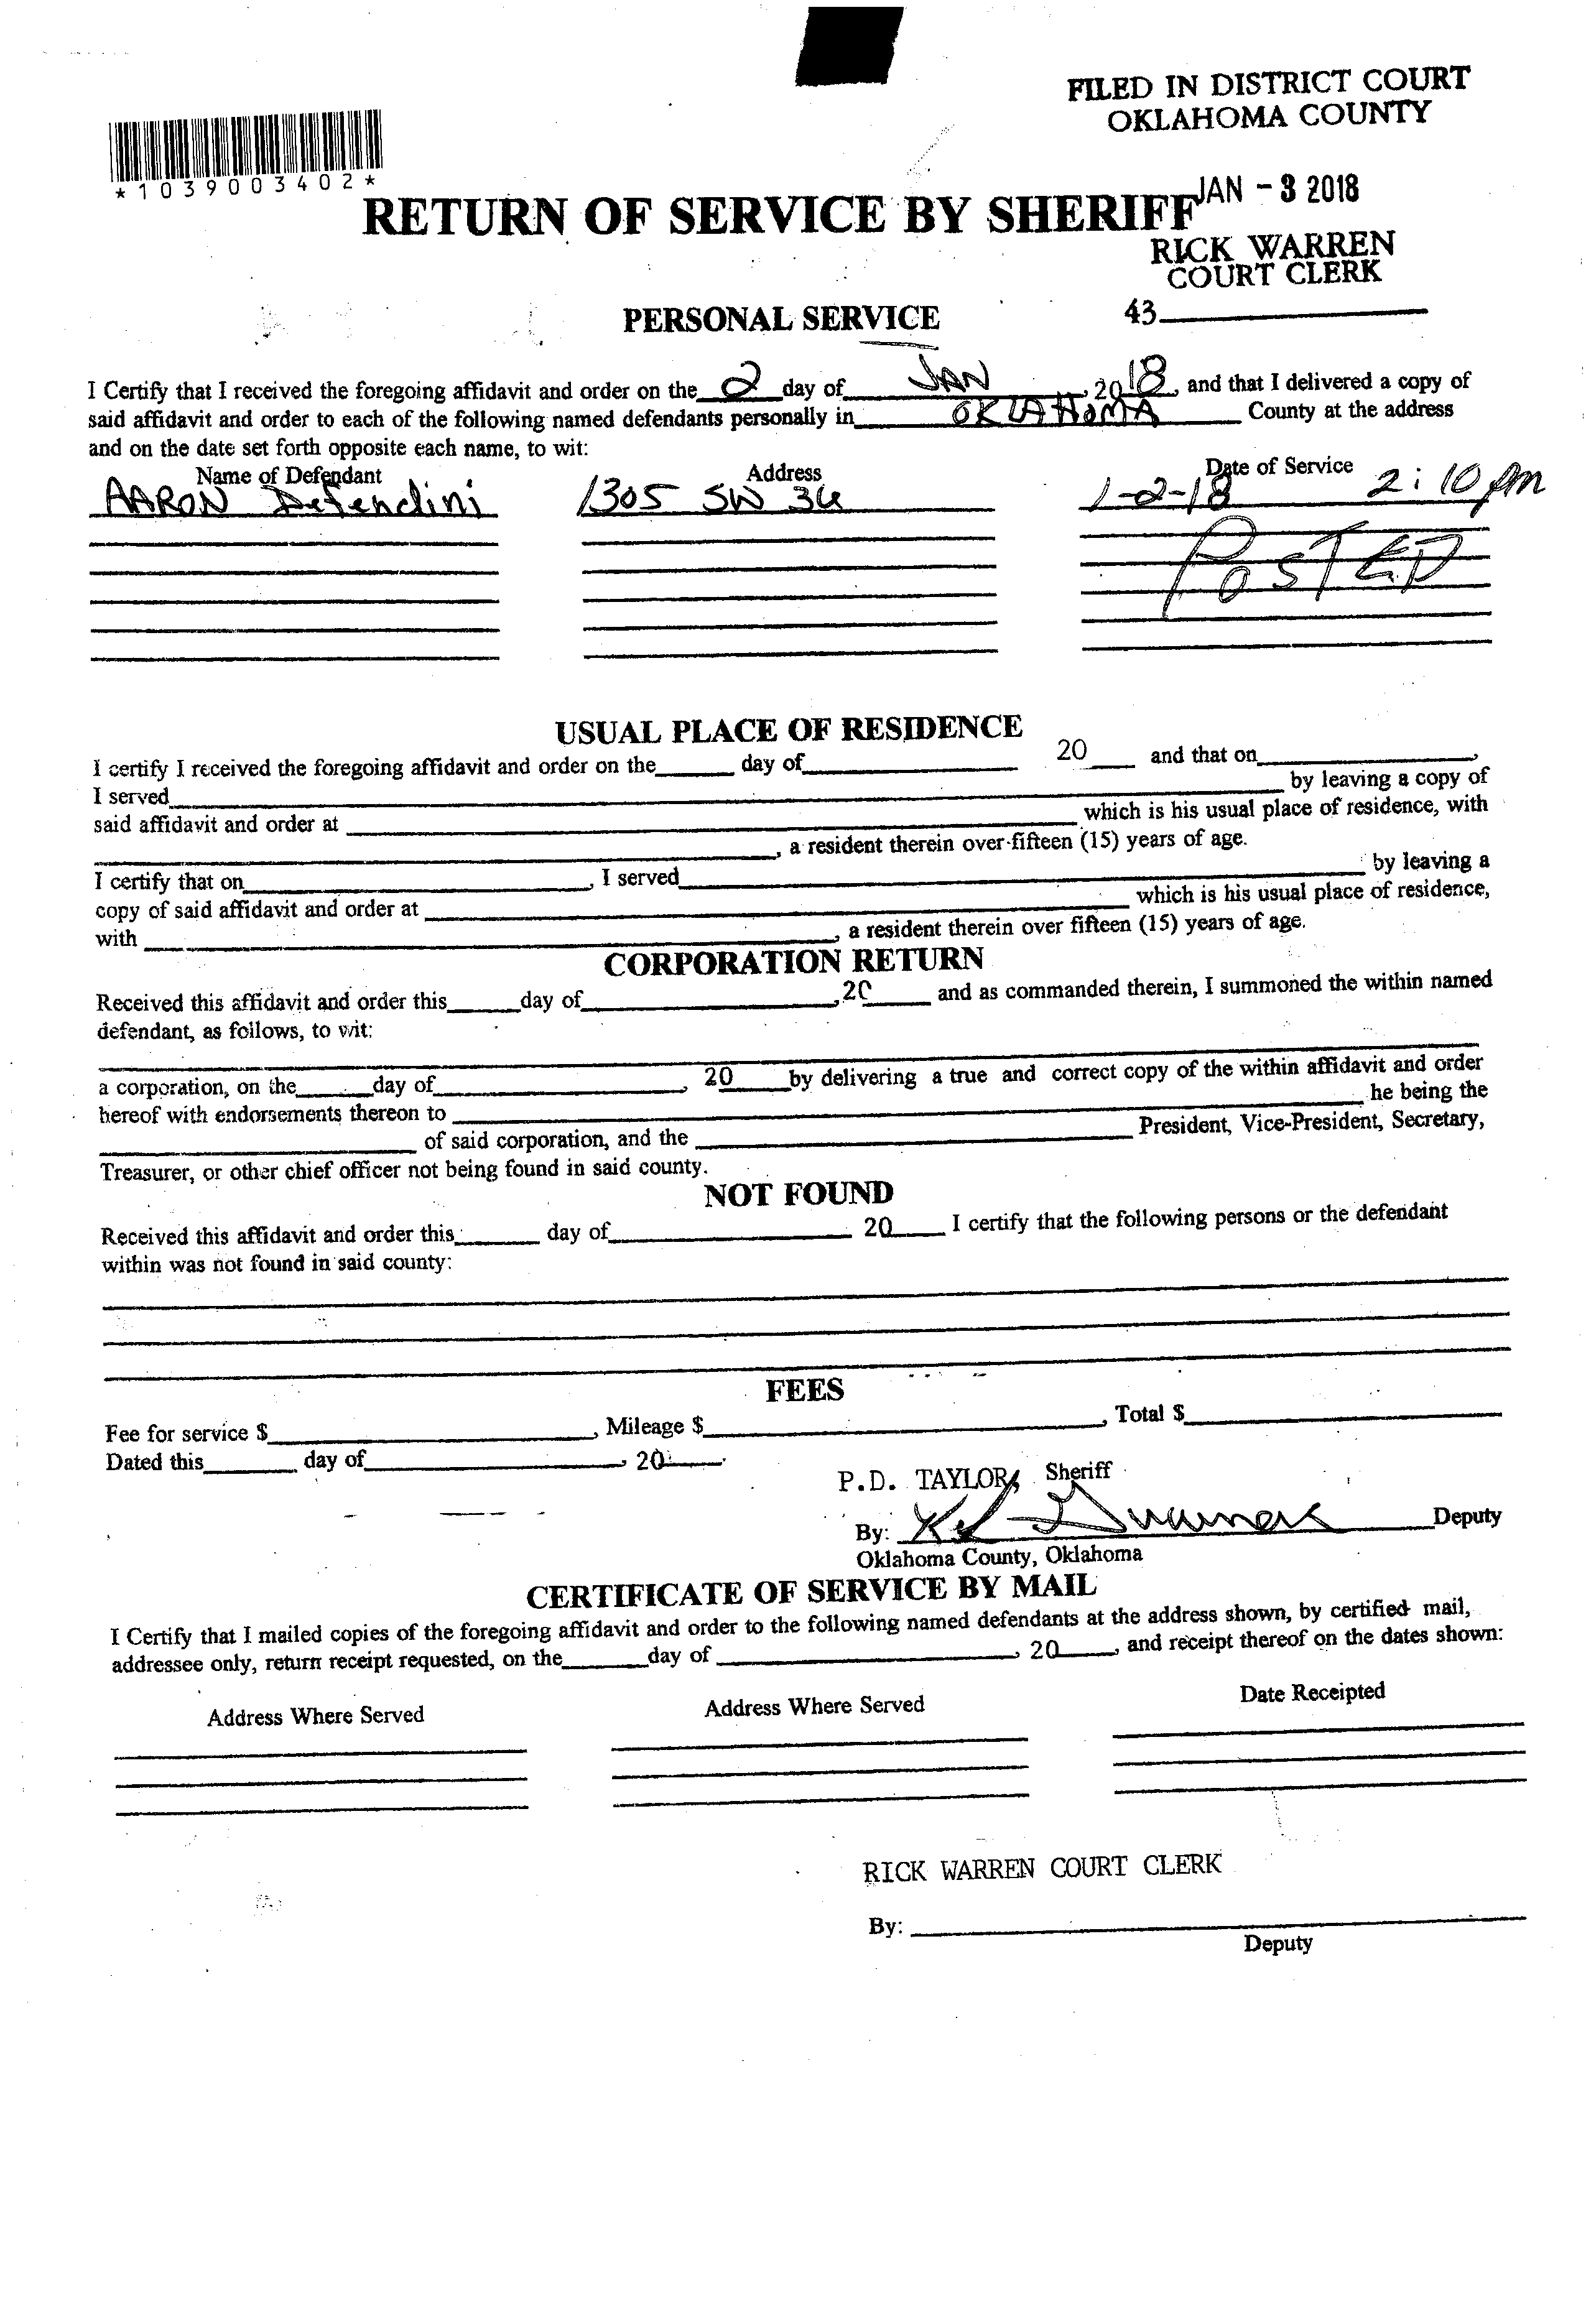 FILED IN DISTRICT COURT
OKLAHOMA COUNTY
*1039003402*
JAN - 3 2018
RETURN OF SERVICE BY SHERIFF
RICK WARREN
COURT CLERK
43
PERSONAL SERVICE
I Certify that I received the foregoing affidavit and order on the 2 day of JAN, 2018, and that I delivered a copy of
said affidavit and order to each of the following named defendants personally in OKLAHOMA County at the address
and on the date set forth opposite each name, to wit:
Name of Defendant Address Date of Service
AARON Defendini 1305 SW 36 1-2-18 2:10 pm
POSTED
USUAL PLACE OF RESIDENCE
I certify I received the foregoing affidavit and order on the day of 20 and that on ,
I served by leaving a copy of
said affidavit and order at which is his usual place of residence, with
, a resident therein over fifteen (15) years of age.
I certify that on , I served by leaving a
copy of said affidavit and order at which is his usual place of residence,
with , a resident therein over fifteen (15) years of age.
CORPORATION RETURN
Received this affidavit and order this day of , 20 and as commanded therein, I summoned the within named
defendant, as follows, to wit:
a corporation, on the day of , 20 by delivering a true and correct copy of the within affidavit and order
hereof with endorsements thereon to he being the
of said corporation, and the President, Vice-President, Secretary,
Treasurer, or other chief officer not being found in said county.
NOT FOUND
Received this affidavit and order this day of 20 I certify that the following persons or the defendant
within was not found in said county:
FEES
Fee for service $ , Mileage $ , Total $
Dated this day of , 20 .
P.D. TAYLOR, Sheriff
By: Deputy
Oklahoma County, Oklahoma
CERTIFICATE OF SERVICE BY MAIL
I Certify that I mailed copies of the foregoing affidavit and order to the following named defendants at the address shown, by certified mail,
addressee only, return receipt requested, on the day of , 20 , and receipt thereof on the dates shown:
Address Where Served Address Where Served Date Receipted
RICK WARREN COURT CLERK
By:
Deputy